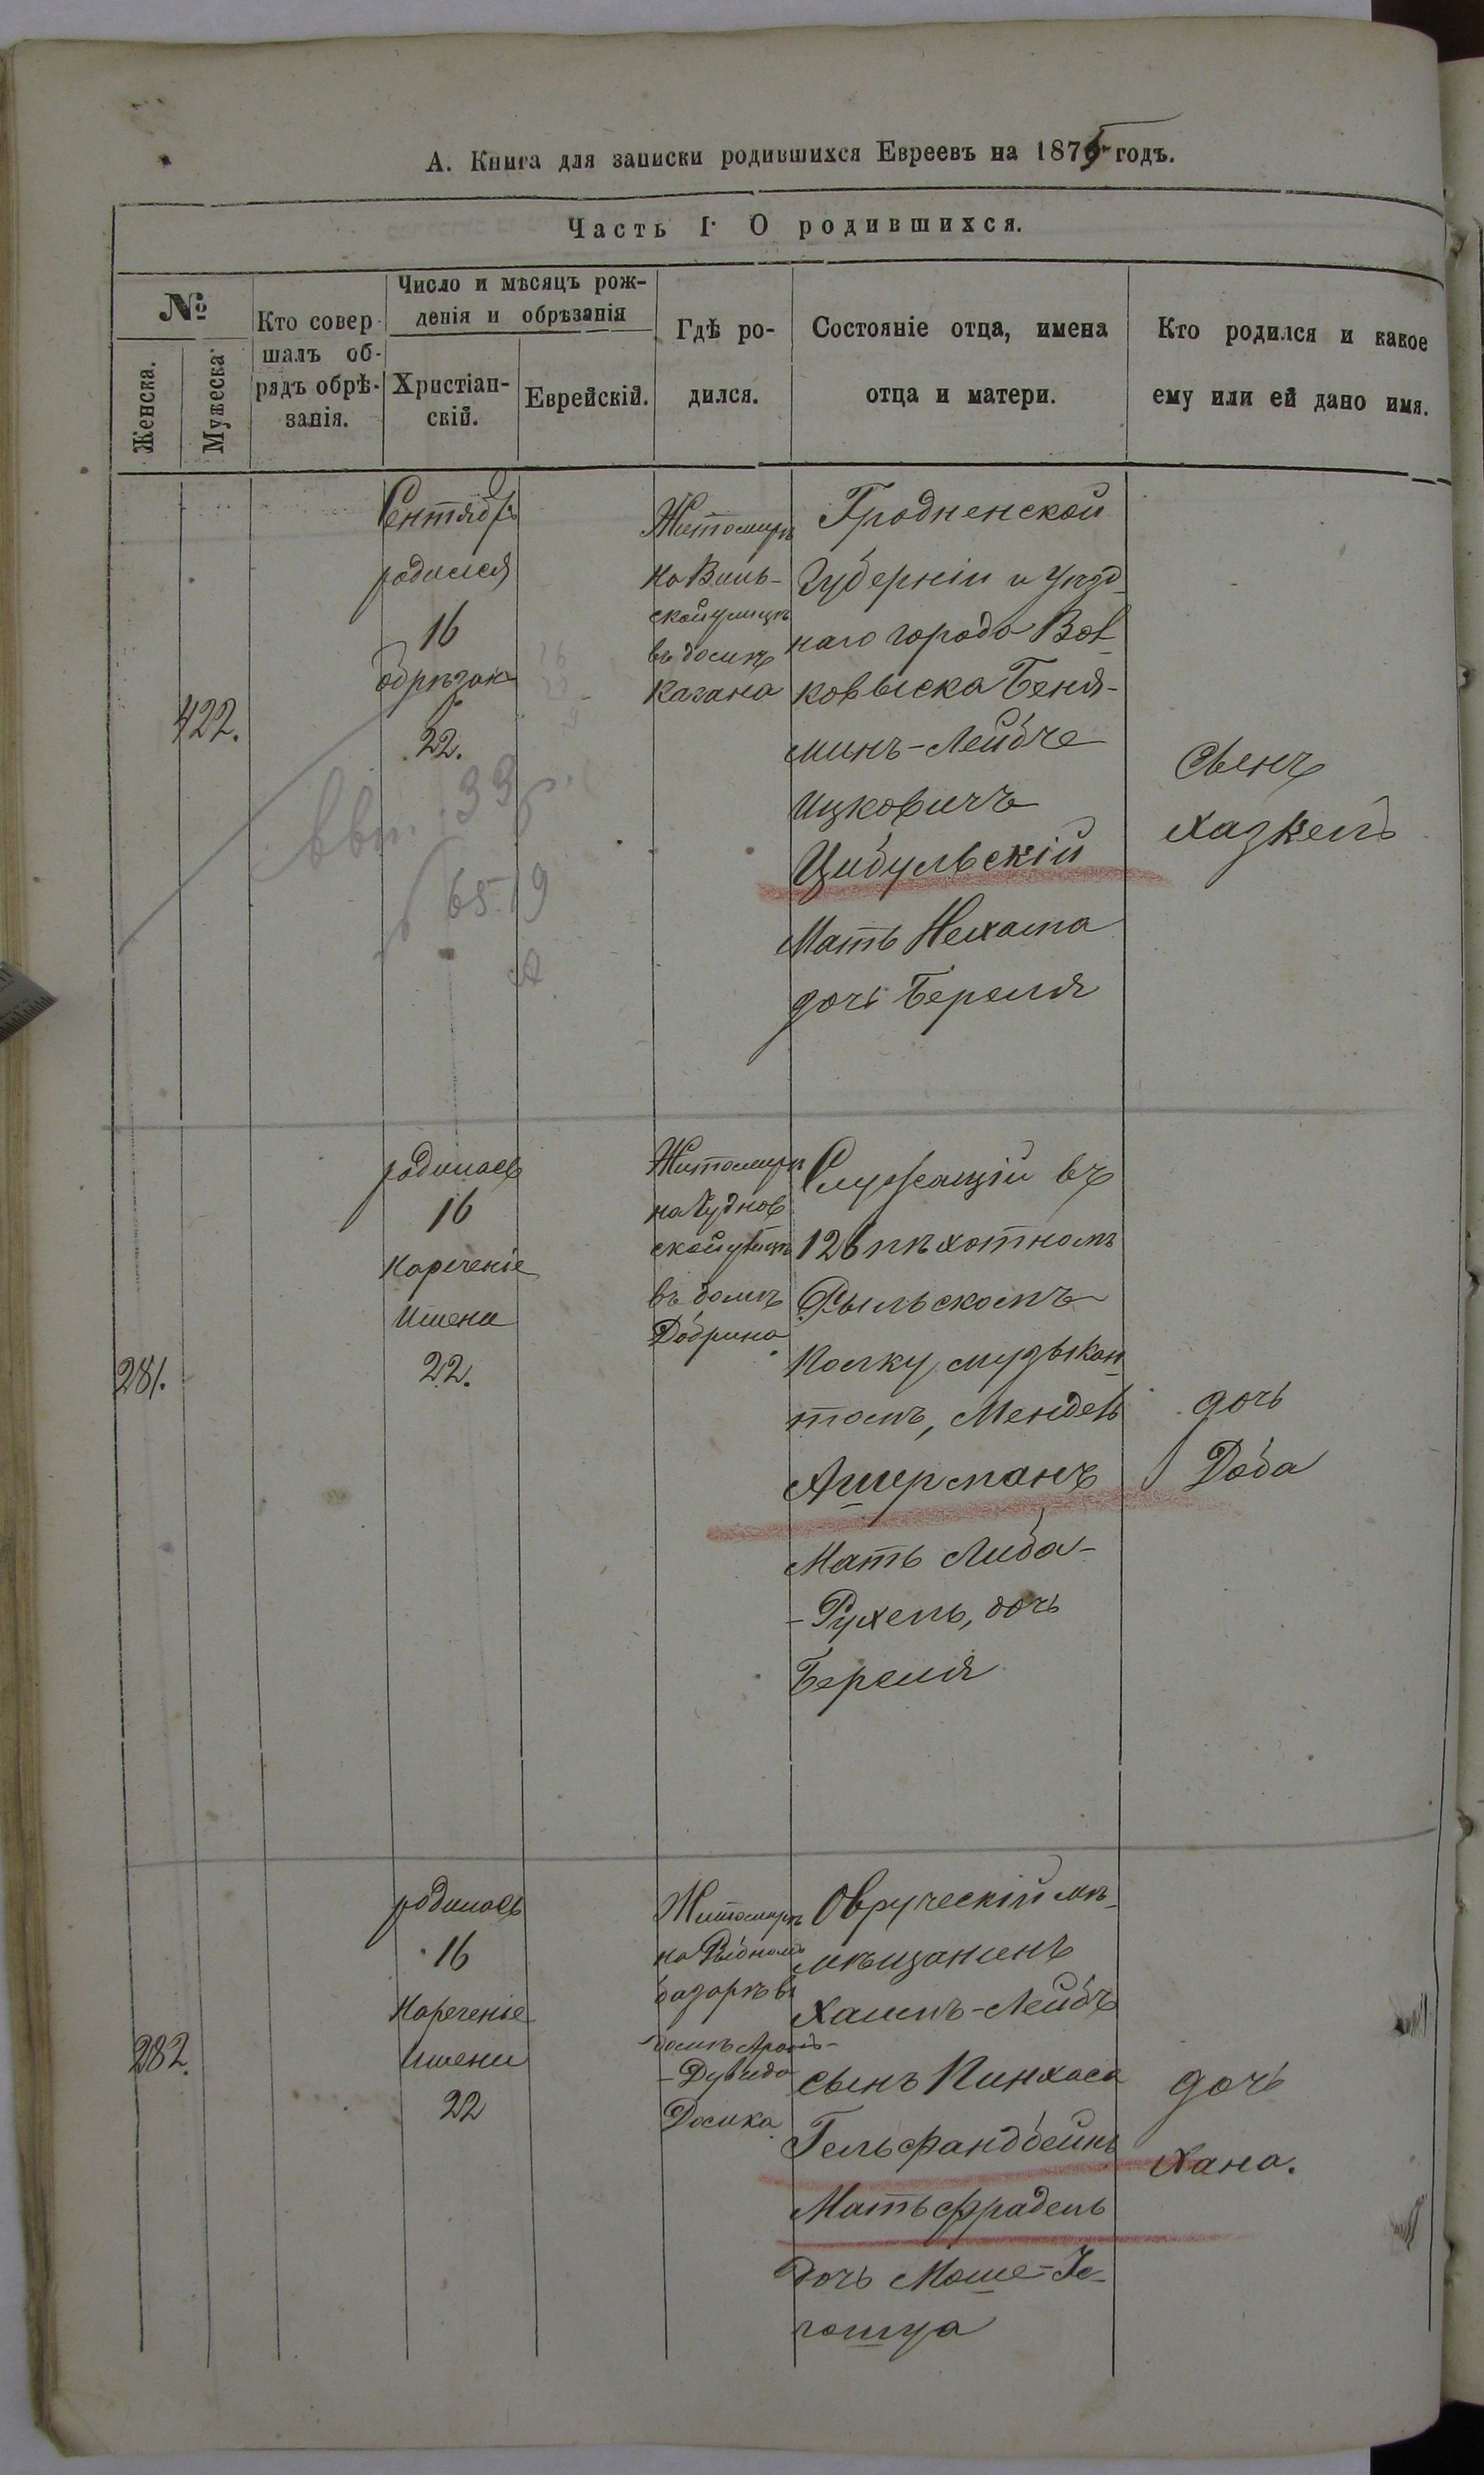 А. Книга для записки родившихся Евреевъ на 1875 годъ.
Часть I. О родившихся.
№
Женска.
Мужеска
Кто совер-
шалъ об-
рядъ обрѣ-
занія.
Число и мѣсяцъ рож-
денія и обрѣзанія
Христіан-
скій.
Еврейскій.
Гдѣ ро-
дился.
Состояніе отца, имена
отца и матери.
Кто родился и какое
ему или ей дано имя.
422.
Сентябрь
родился
16
обрѣзанъ
22.
Житомиръ
на Виль-
ской улицѣ
въ домѣ
Кагана
Гродненской
Губерніи и уѣзд-
наго города Вол-
ковыска Беня-
минъ-Лейбче
Ицковичъ
Цибульскій
Мать Нехама
дочь Береля
Сынъ
Хазкель
33
65.19
281.
родилась
16
Нареченіе
Имени
22.
Житомиръ
на Чуднов
ской улицѣ
въ домѣ
Добрина
Служащій въ
126 пѣхотномъ
Рыльскомъ
Полку, музыкан-
томъ, Мендель
Ашерманъ
Мать Либа-
-Рухель, дочь
Береля
дочь
Доба
282.
родилась
16
Нареченіе
Имени
22
Житомиръ
на Рыбномъ
базарѣ въ
домѣ Аронъ-
-Дувида
Досика
Овруческій мѣ-
мѣщанинъ
Хаимъ-Лейбъ
сынъ Пинхаса
Гельфандбейнъ
Мать Фрадель
дочь Моше-Іе-
гошуа
дочь
Хана.